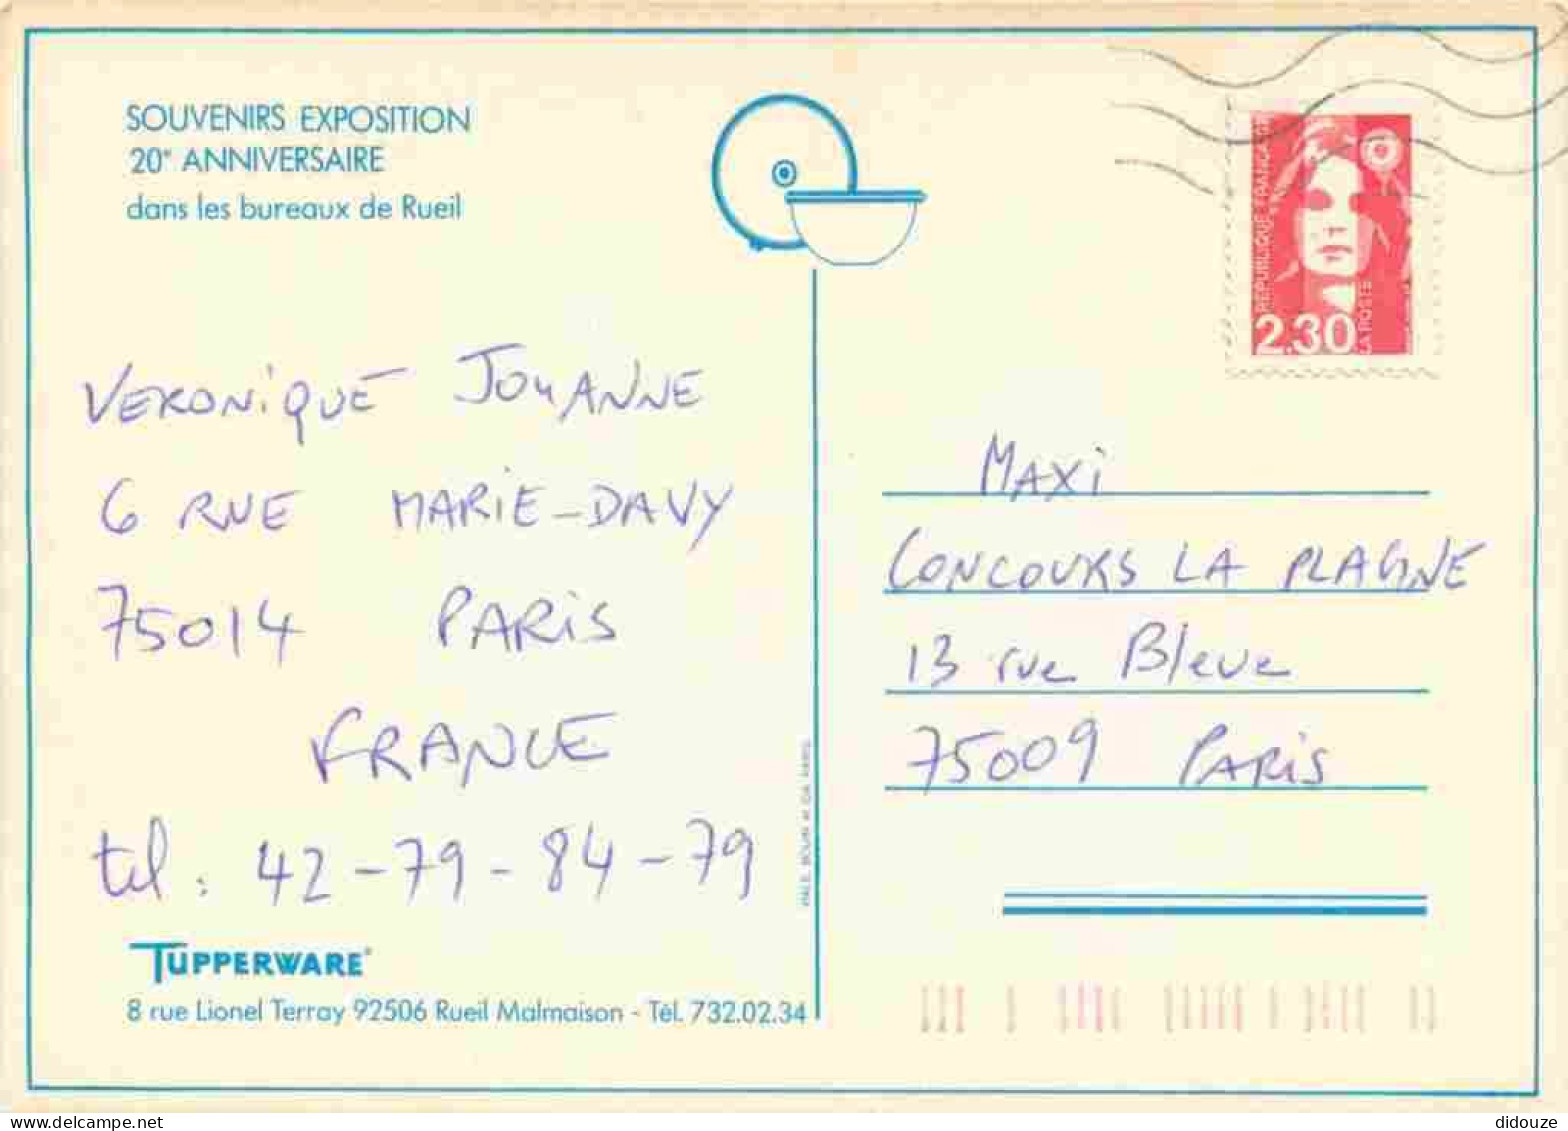 SOUVENIRS EXPOSITION
20e ANNIVERSAIRE
dans les bureaux de Rueil
REPUBLIQUE FRANCAISE
2,30
LA POSTE
VERONIQUE JOUANNE
6 RUE MARIE-DAVY
75014 PARIS
FRANCE
tel : 42-79-84-79
MAXI
CONCOURS LA PLAGNE
13 rue Bleue
75009 PARIS
TUPPERWARE®
8 rue Lionel Terray 92506 Rueil Malmaison - Tél. 732.02.34
www.delcampe.net
didouze